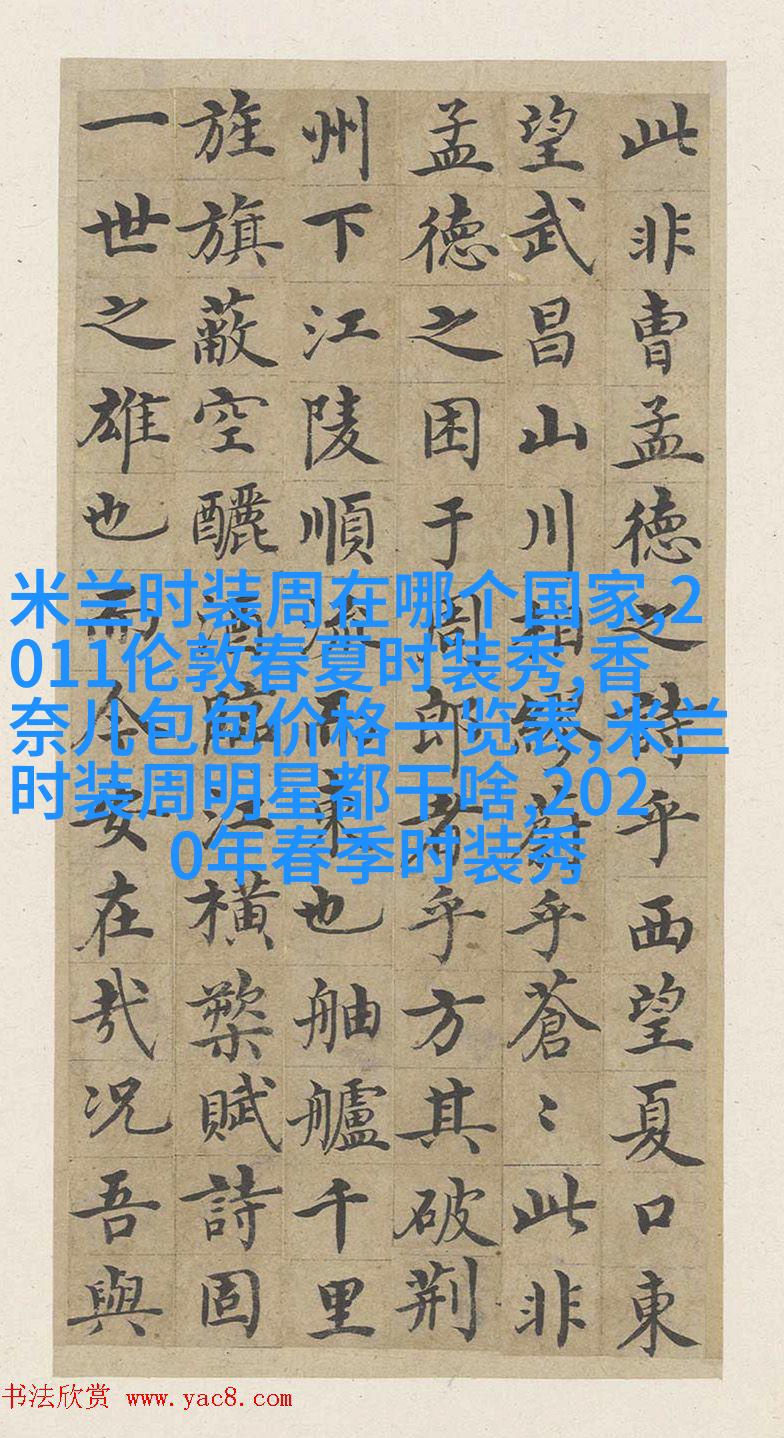 此非曹孟德之詩乎西望夏口東
望武昌山川相繆蔚乎蒼〻此非
孟德之困于周郎者乎方其破荆
州下江陵順流而東也舳艫千里
旌旗蔽空釃酒臨江橫槊賦詩固
一世之雄也而今安在哉况吾與
米兰时装周在哪个国家,2
011伦敦春夏时装秀,香
奈儿包包价格一览表,米兰
时装周明星都干啥,202
0年春季时装秀
书法欣赏 www.yac8.com